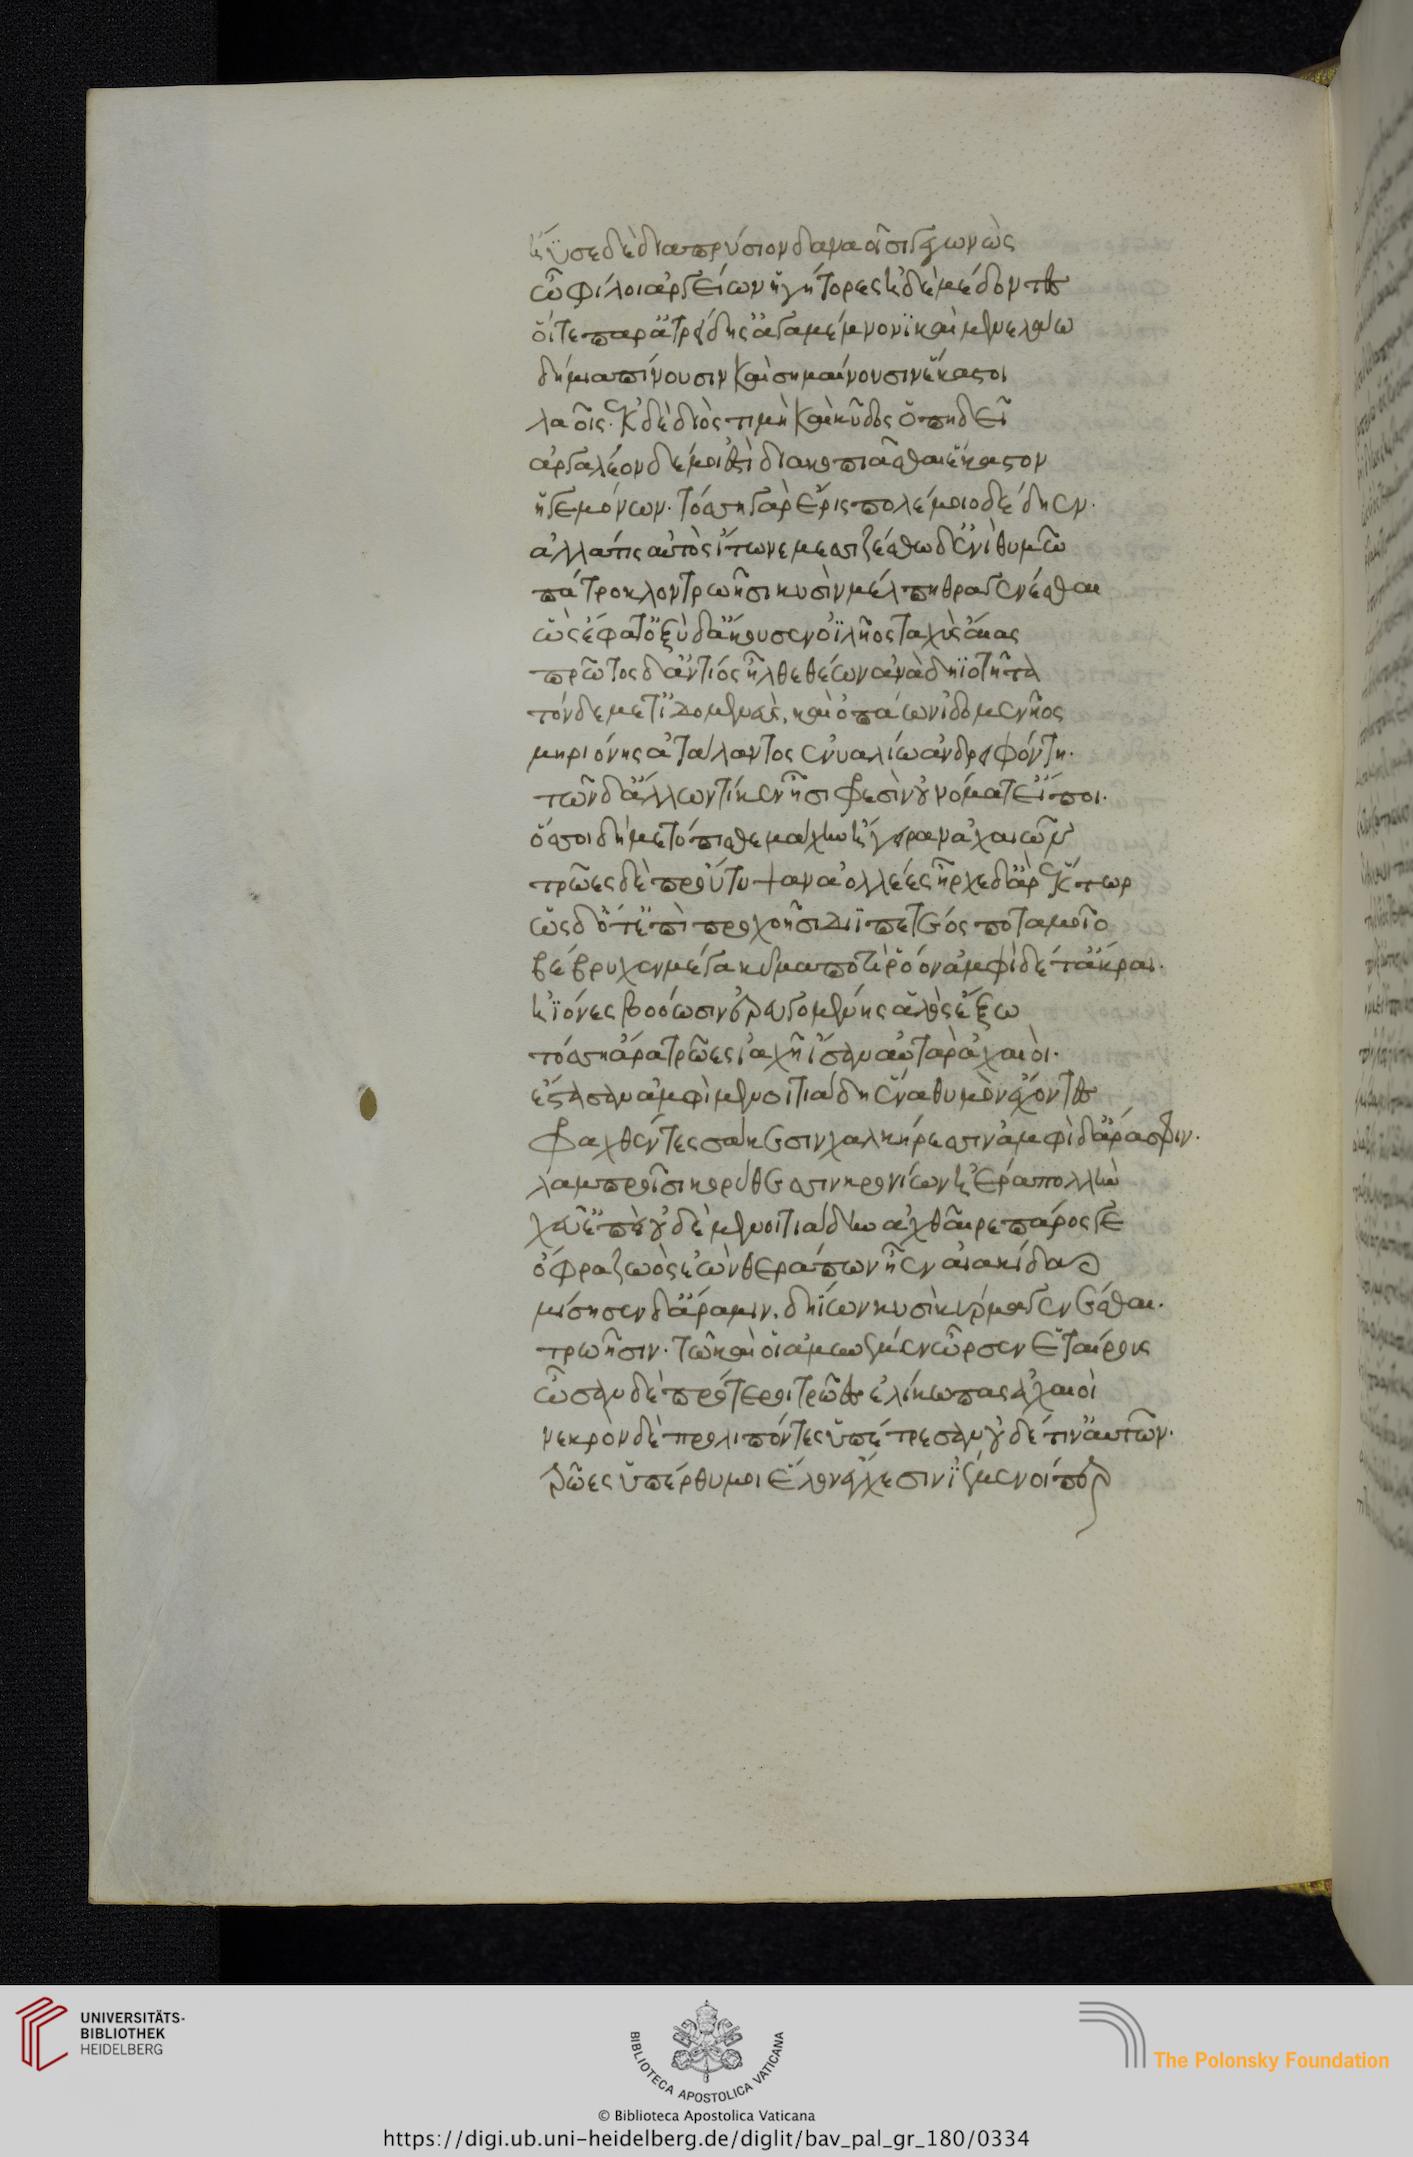 ἤϋσε δὲ διαπρύσιον δαναοῖσι γεγωνὼς
ὦ φίλοι ἀργείων ἡγήτορες ἠδὲ μέδοντες
οἵτε παρ' ἀτρείδης ἀγαμέμνονϊ καὶ μενελάω
δήμια πίνουσιν καὶ σημαίνουσιν ἕκαστοι
λαοῖς· ἐκ δὲ διὸς τιμὴ καὶ κῦδος ὀπηδεῖ
ἀργαλέον δέ μοι ἐστὶ διακοπιᾶσθαι ἕκαστον
ἡγεμόνων· τόσση γὰρ ἔρις πολέμοιο δέδηεν·
ἀλλά τις αὐτὸς ἴτω νεμεσιζέσθω δ' ἐνὶ θυμῶ
πάτροκλον τρωῆσι κυσὶν μέλπηθρα γενέσθαι
ὣς ἔφατ' ὀξὺ δ' ἄκουσεν ὀϊλῆος ταχὺς αἴας
πρῶτος δ' ἀντίος ἦλθε θέων ἀνὰ δηϊοτῆτα
τόνδε μετ' ἰδομενεὺς, καὶ ὀπάων ἰδομενῆος
μηριόνης ἀτάλαντος ἐνυαλίω ἀνδρειφόντη·
τῶν δ' ἄλλων τίς κεν ἧσι φρεσὶν οὐνόματ' εἴποι·
ὅσσοι δὴ μετόπισθε μάχην ἤγειραν ἀχαιῶν
τρῶες δὲ προὔτυψαν ἀολλέες ἦρχε δ' ἄρ' ἕκτωρ
ὡς δ' ὅτ' ἐπὶ προχοῆσι διϊπετέος ποταμοῖο
βέβρυχεν μέγα κῦμα ποτὶ ῥόον ἀμφὶ δέ τ' ἄκραι·
ἠϊόνες βοόωσιν ἐρευγομένης ἁλὸς ἔξω
τόσση ἄρα τρῶες ἰαχῆ ἴσαν αὐτὰρ ἀχαιοὶ·
ἕστασαν ἀμφὶ μενοιτιάδη ἕνα θυμὸν ἔχοντες
φραχθέντες σάκεσιν χαλκήρεσιν ἀμφὶ δ' ἄρά σφιν·
λαμπροῖσι κορύθεσσιν κρονίων ἠέρα πολλὴν
χεῦ' ἐπεὶ οὐδὲ μενοιτιάδην ἀχθαῖρε πάρος γε
ὄφρα ζωὸς ἐὼν θεράπων ἦεν αἰακίδαο
μίσησεν δ' ἄρα μιν. δηΐων κυσὶ κύρμα γενέσθαι·
τρωῆσιν· τῶ καὶ οἱ ἀμυνέμεν ὦρσεν ἑταίρους
ὦσαν δὲ πρότεροι τρῶες ἑλίκωπας ἀχαιοὶ
νεκρὸν δὲ προλιπόντες ὑπέτρεσαν οὐδέ τιν' αὐτῶν·
τρῶες ὑπέρθυμοι ἕλον ἔγχεσιν ἱέμενοί περ
UNIVERSITÄTS-
BIBLIOTHEK
HEIDELBERG
BIBLIOTECA APOSTOLICA VATICANA
The Polonsky Foundation
© Biblioteca Apostolica Vaticana
https://digi.ub.uni-heidelberg.de/diglit/bav_pal_gr_180/0334